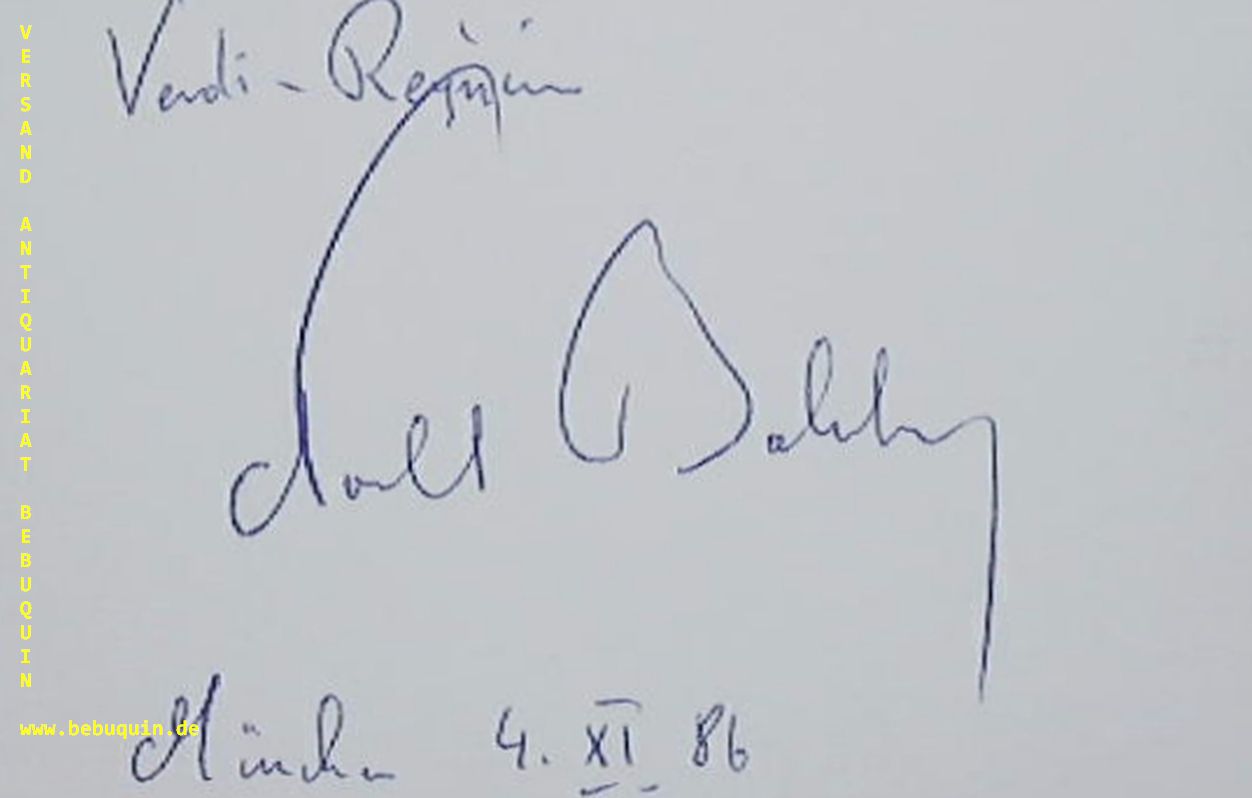 VERSAND ANTIQUARIAT BEBUQUIN
www.bebuquin.de
Verdi - Requiem
München 4. XI 86